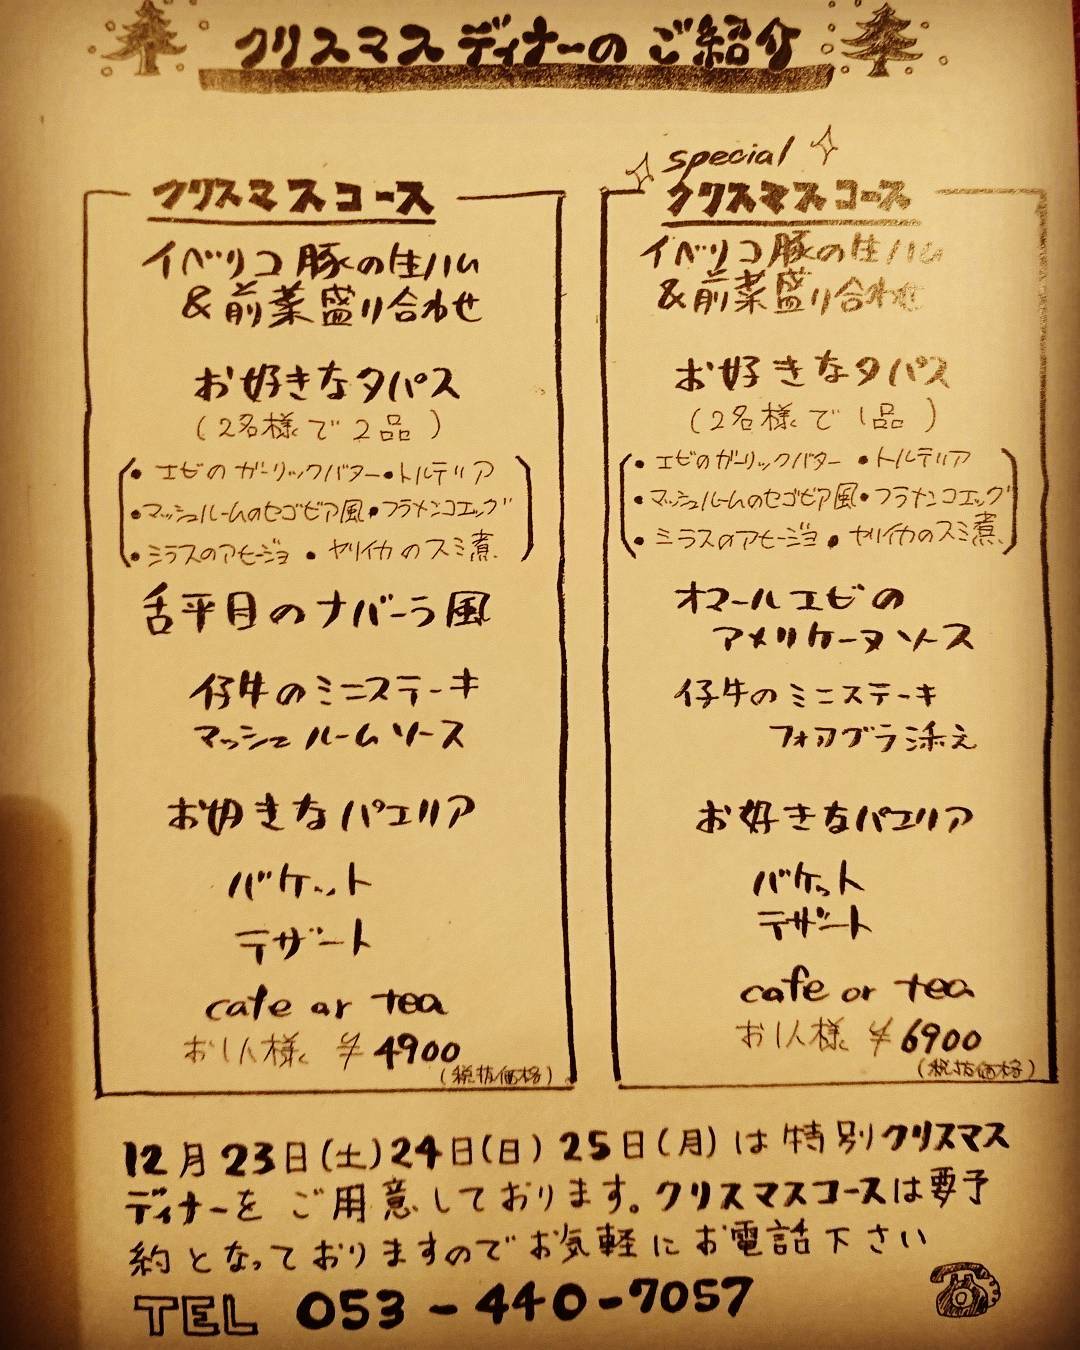 クリスマスディナーのご紹介
クリスマスコース
イベリコ豚の生ハム
&前菜盛り合わせ
お好きなタパス
(2名様で2品)
・エビのガーリックバター・トルティリア
・マッシュルームのセゴビア風・フラメンコエッグ
・シラスのアヒージョ ・ヤリイカのスミ煮
舌平目のナバーラ風
仔牛のミニステーキ
マッシュルームソース
お好きなパエリア
バケット
デザート
cafe or tea
お1人様 ¥4900
(税抜価格)
special
クリスマスコース
イベリコ豚の生ハム
&前菜盛り合わせ
お好きなタパス
(2名様で1品)
・エビのガーリックバター ・トルティリア
・マッシュルームのセゴビア風・フラメンコエッグ
・シラスのアヒージョ・ヤリイカのスミ煮
オマールエビの
アメリケーヌソース
仔牛のミニステーキ
フォアグラ添え
お好きなパエリア
バケット
デザート
cafe or tea
お1人様 ¥6900
(税抜価格)
12月23日(土)24日(日)25日(月)は特別クリスマス
ディナーをご用意しております。クリスマスコースは要予
約となっておりますのでお気軽にお電話下さい
TEL 053-440-7057